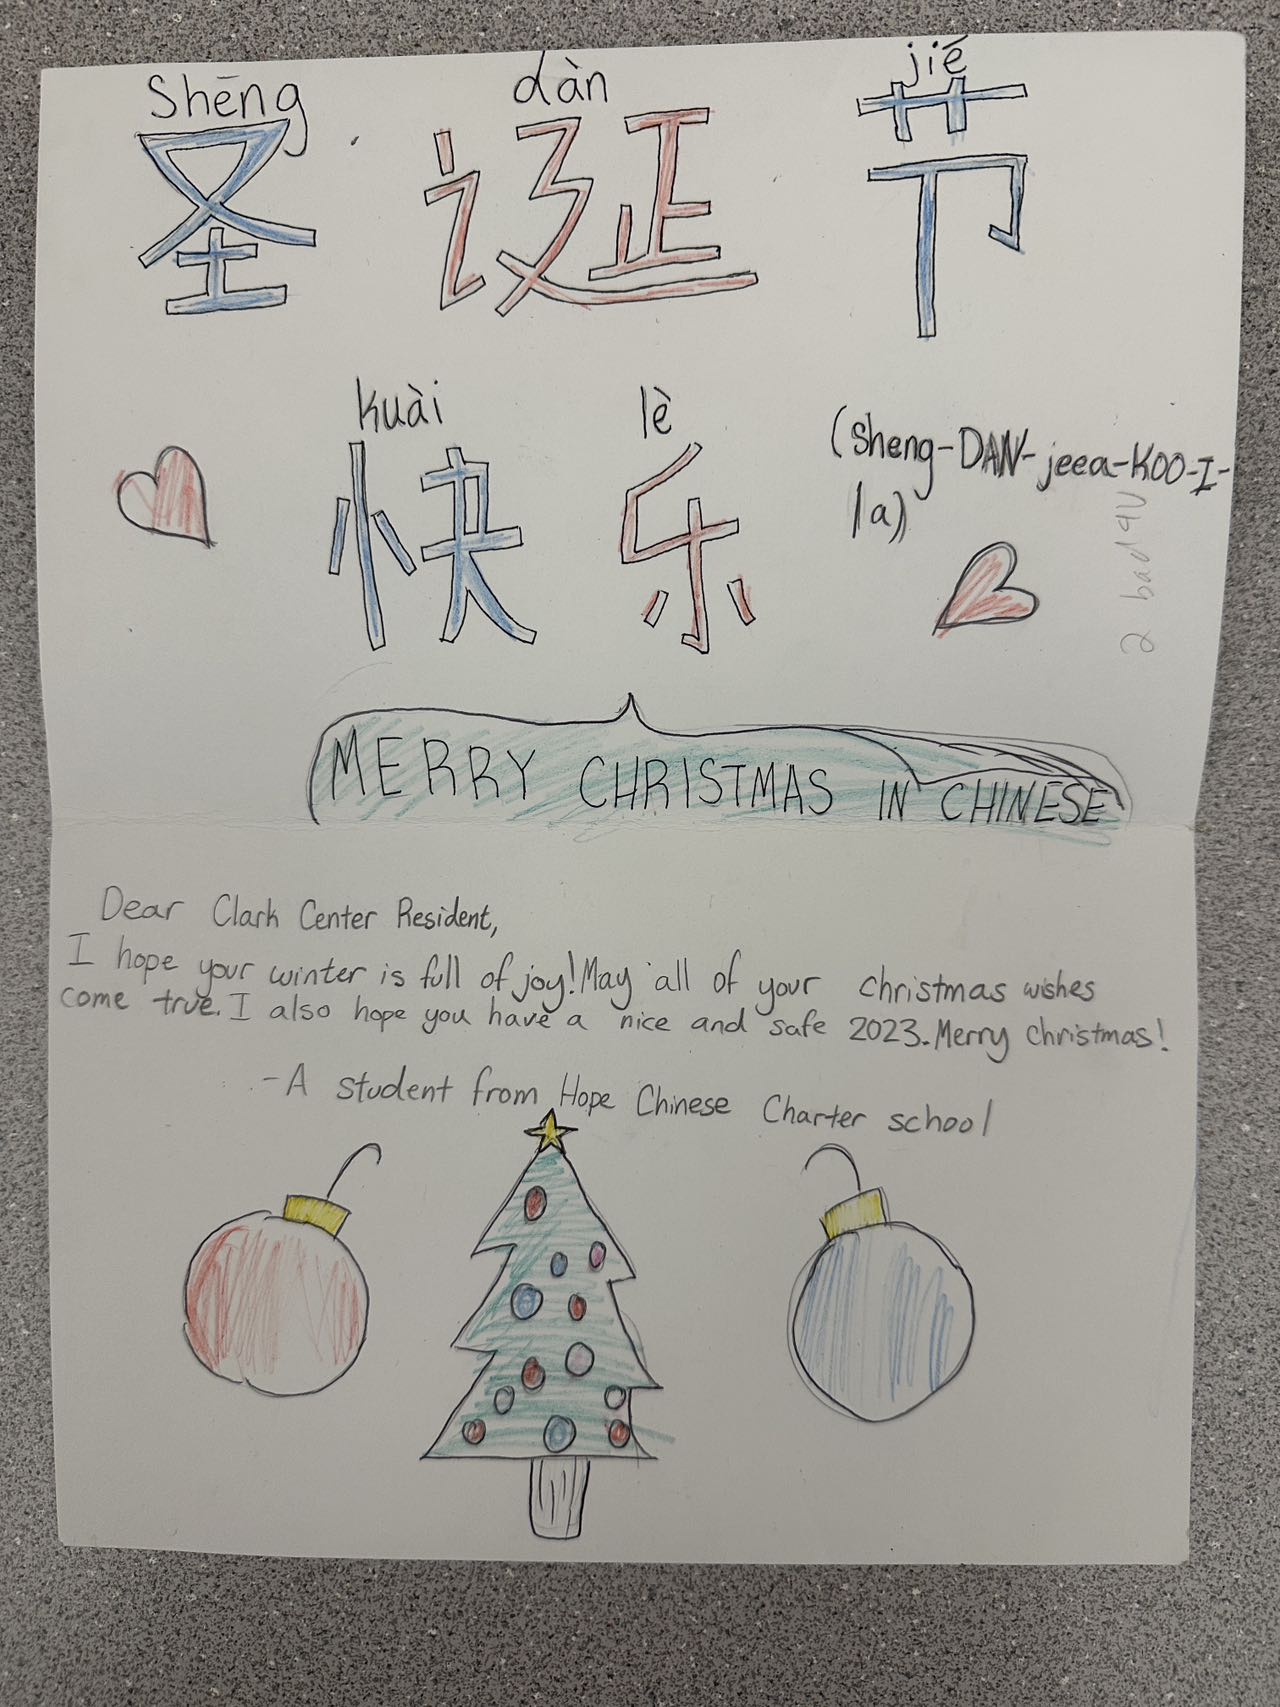 Shēng dàn jié
圣诞节
kuài lè
快乐
(sheng-DAN-jeea-KOO-I-
la)
MERRY CHRISTMAS IN CHINESE
Dear Clark Center Resident,
I hope your winter is full of joy! May all of your christmas wishes
come true. I also hope you have a nice and safe 2023. Merry christmas!
-A student from Hope Chinese Charter school